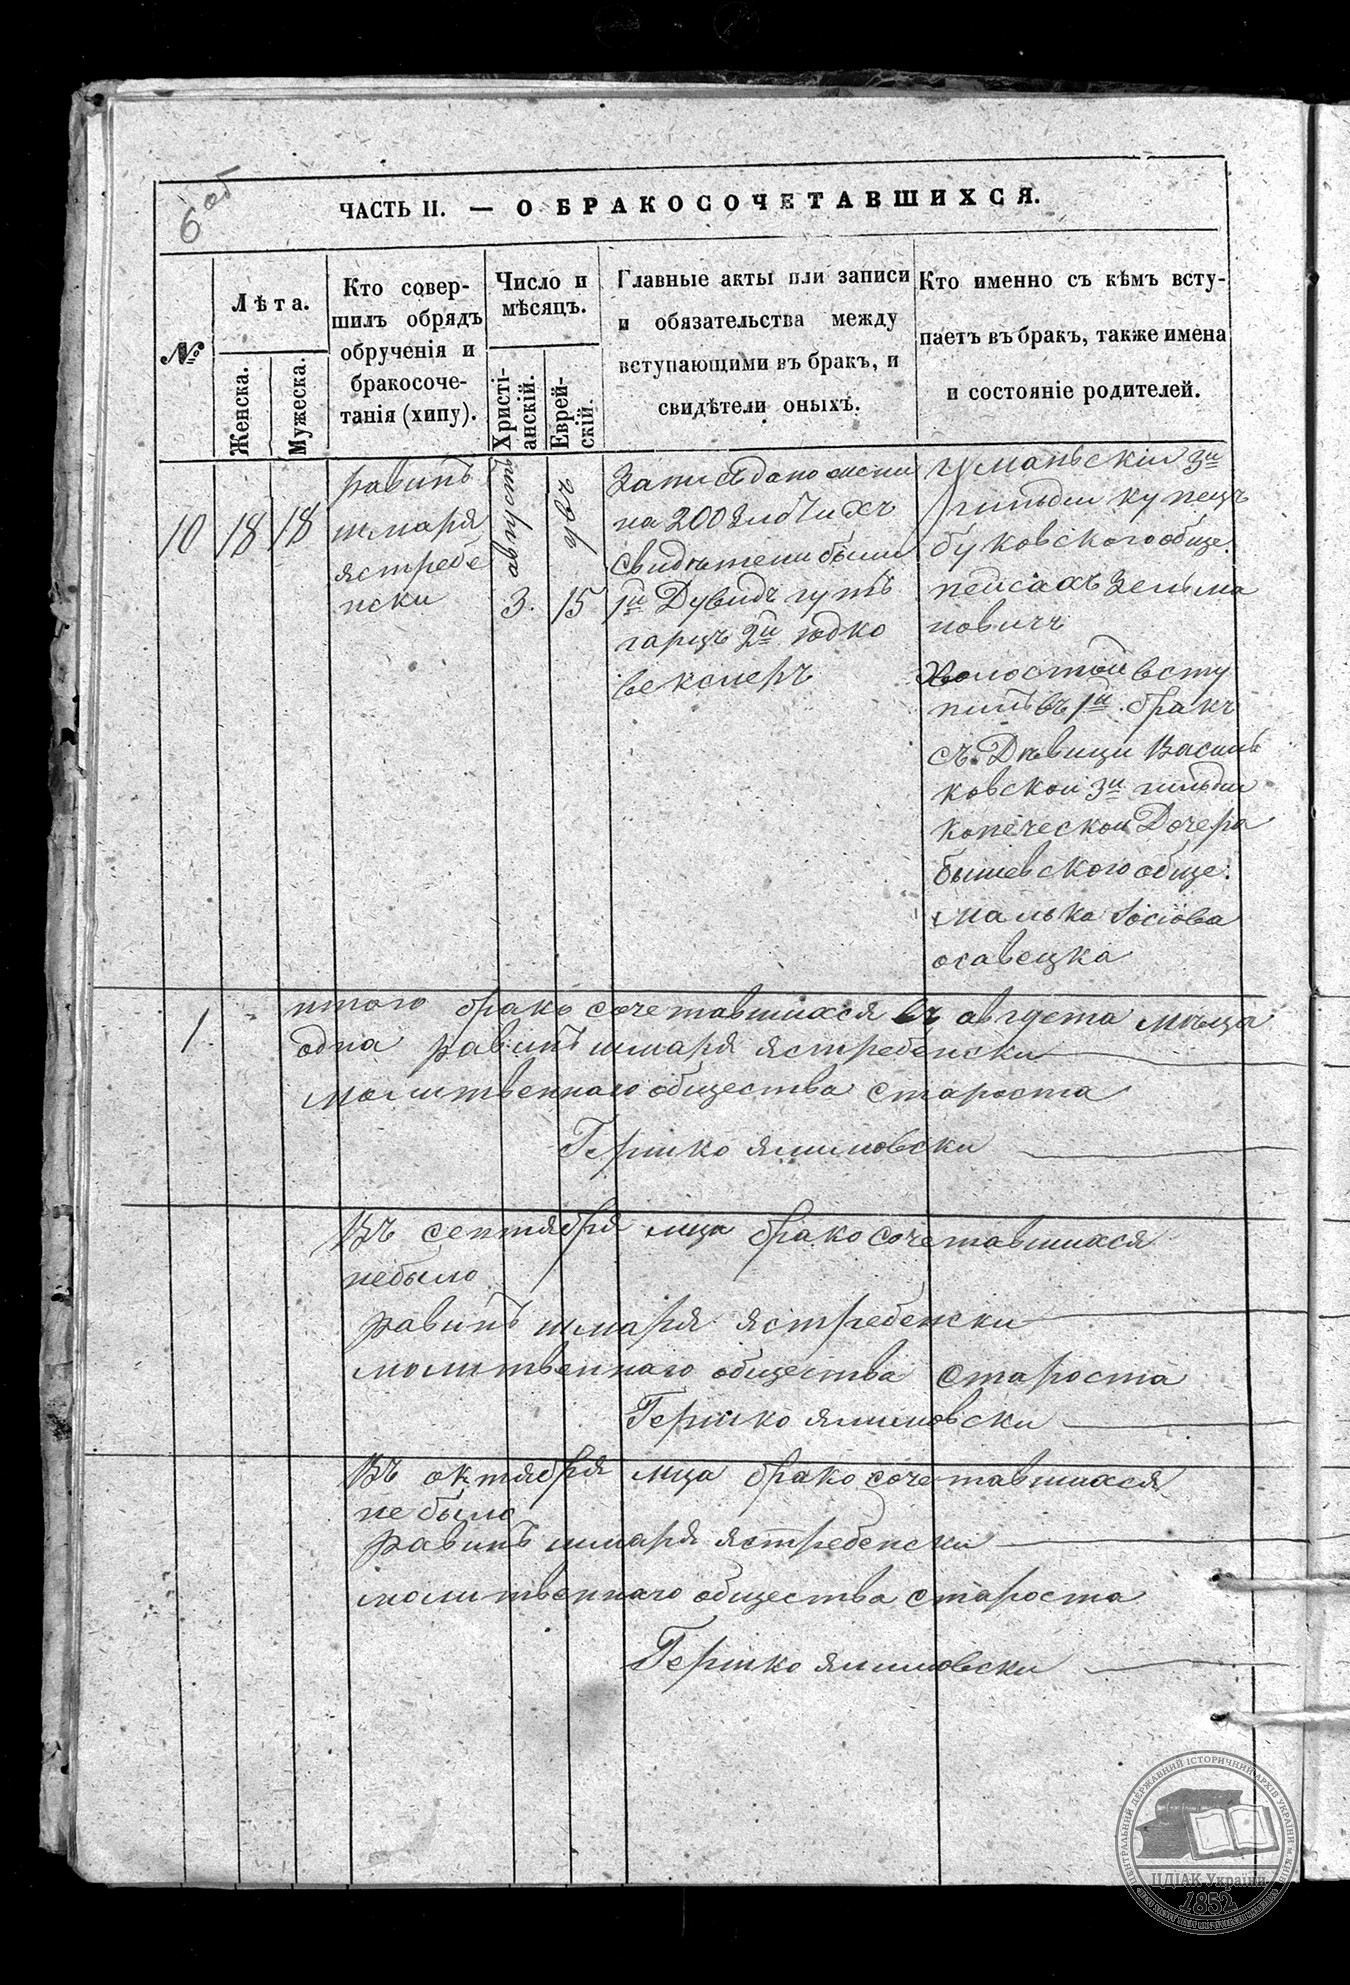 6 об
ЧАСТЬ II. — О БРАКОСОЧЕТАВШИХСЯ.
№
Лѣта.
Женска.
Мужеска.
Кто совер-
шилъ обрядъ
обрученія и
бракосоче-
танія (хипу).
Число и
мѣсяцъ.
Христі-
анскій.
Еврей-
скій.
Главные акты или записи
и обязательства между
вступающими въ бракъ, и
свидѣтели оныхъ.
Кто именно съ кѣмъ всту-
паетъ въ бракъ, также имена
и состояніе родителей.
10
18
18
равинъ
шмаря
ястребе
нски
августъ
3.
увъ
15
запись дано жени
на 200 злотихъ
свидѣтели были
1й Дувидъ гутъ
гарцъ 2й юдко
векслеръ
уманьскіи 3и
гильдіи купецъ
буковского обще.
пейсахъ Зельма
новичъ
Холостои всту
пилъ въ 1й бракъ
съ Дѣвици Василь
ковскои 3и гильдіи
копеческои Дочера
бышевского обще:
малька Іосіова
осавецка
1.
итого брако сочетавшихся въ августа мѣьца
одна равинъ шмаря ястребенски
молитвеннаго общества староста
Гершко ялиновски
Въ сентября мца брако сочетавшихся
небыло
равинъ шмаря ястребенски
молитвеннаго общества староста
Гершко ялиновски
Въ октября мца брако сочетавшихся
не было
равинъ шмаря ястребенски
молитвеннаго общества староста
Гершко ялиновски
ЦЕНТРАЛЬНИЙ ДЕРЖАВНИЙ ІСТОРИЧНИЙ АРХІВ УКРАЇНИ М. КИЇВ
ЦДІАК України
1852